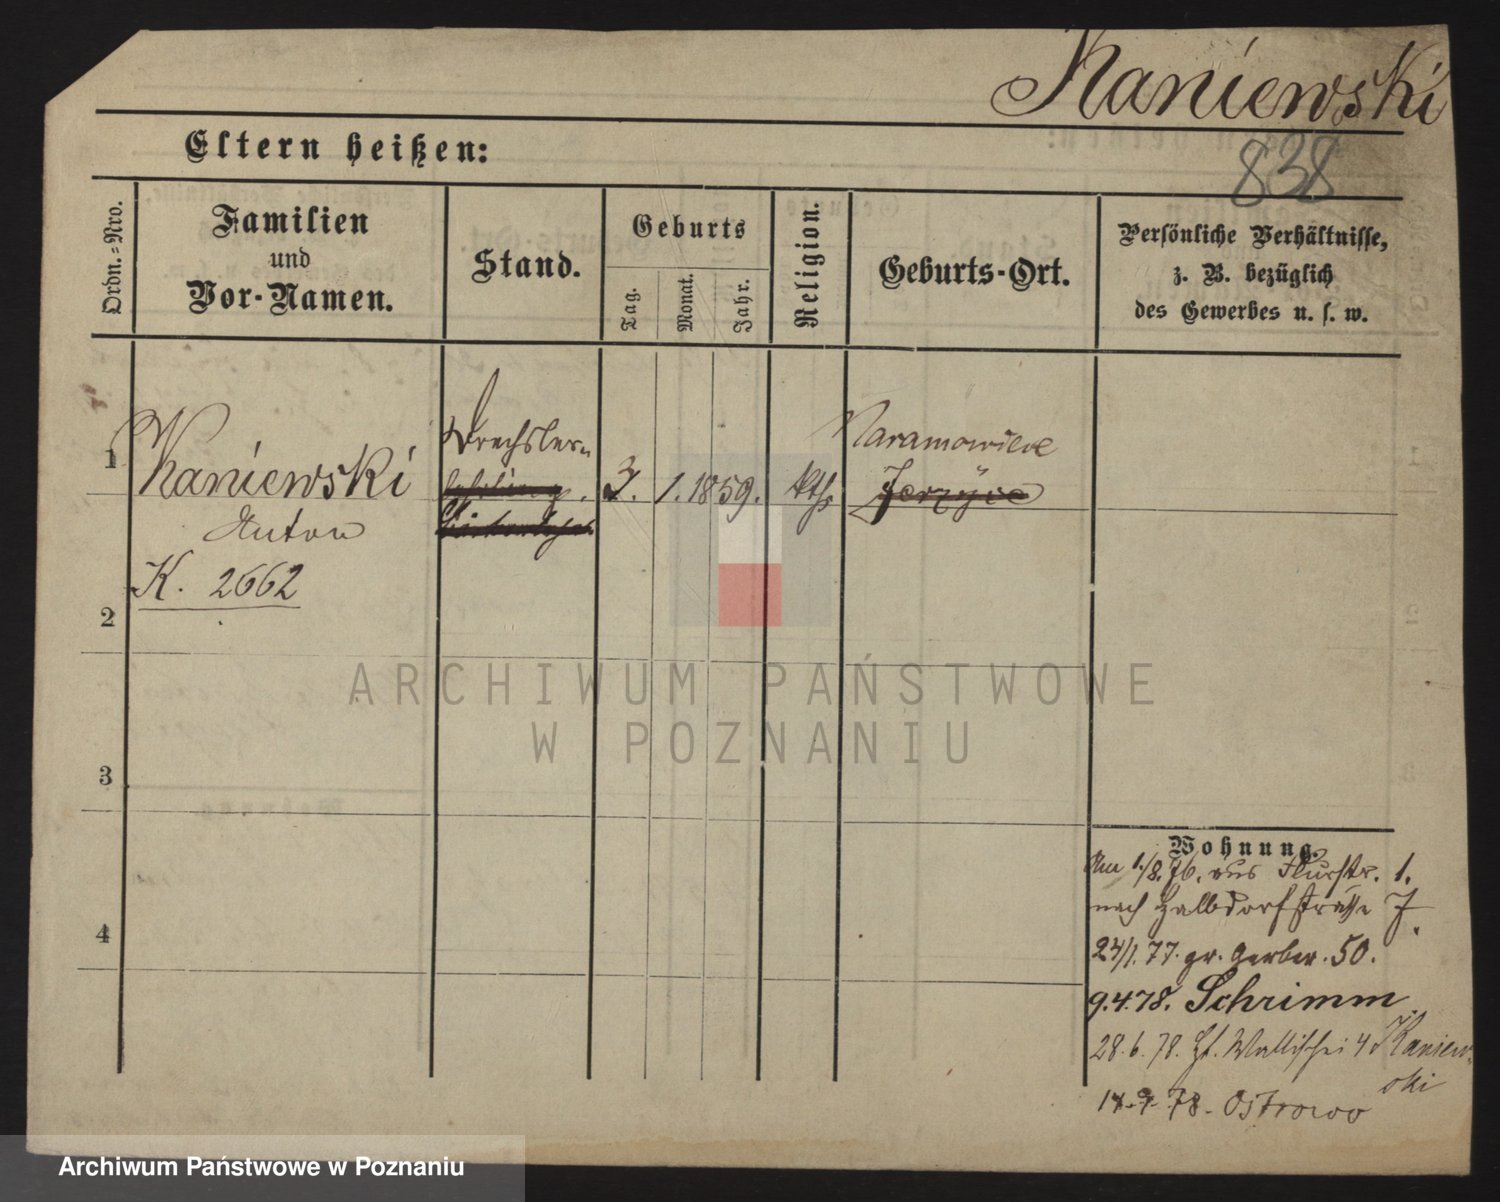 Kaniewski
838
Eltern heißen:
Ordn.-Nro.
Familien
und
Vor-Namen.
Stand.
Geburts
Tag.
Monat.
Jahr.
Religion.
Geburts-Ort.
Persönliche Verhältnisse,
z. B. bezüglich
des Gewerbes u. s. w.
1
Kaniewski
Anton
K. 2662
Drechsler
3. 1. 1859.
kth
Naramowice
Jerzyce
2
3
4
Wohnung.
Am 1./8. 76. aus Flurstr. 1.
nach Halbdorfstrasse 7.
24/1. 77. gr. Gerber. 50.
9.4.78. Schrimm
28.6.78. Wallischei 4 Kaniew-
ski
78. Ostrowo
ARCHIWUM PAŃSTWOWE
W POZNANIU
Archiwum Państwowe w Poznaniu